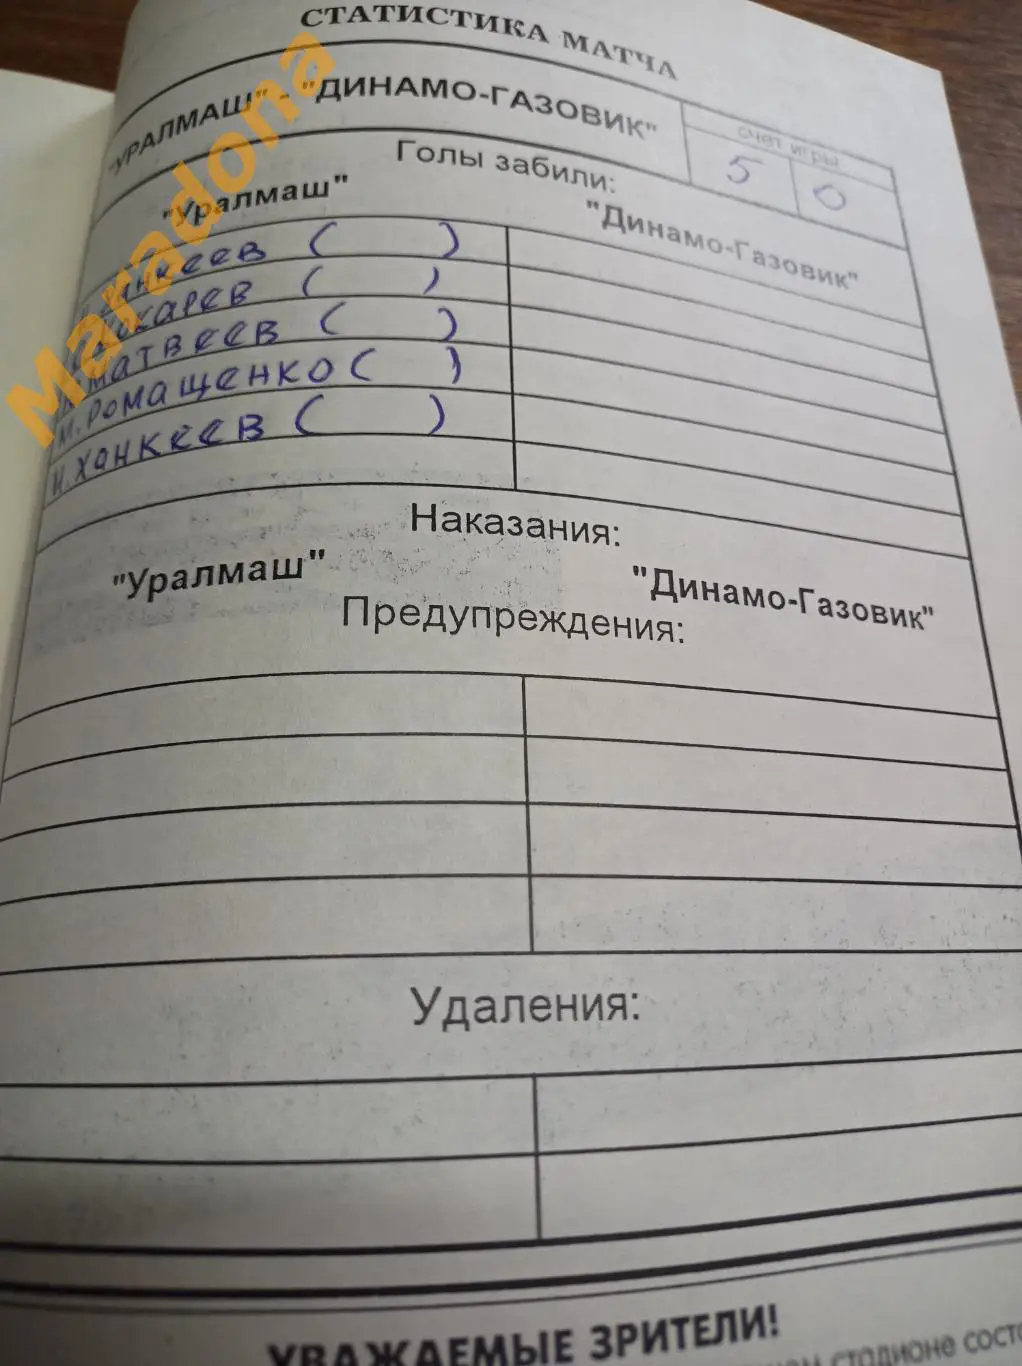 СТАТИСТИКА МАТЧА
"УРАЛМАШ" - "ДИНАМО-ГАЗОВИК"
счет игры
5 0
Голы забили:
"Уралмаш" "Динамо-Газовик"
( )
( )
Матвеев ( )
М. Ромащенко ( )
Н. Ханкеев ( )
Наказания:
"Уралмаш" "Динамо-Газовик"
Предупреждения:
Удаления:
УВАЖАЕМЫЕ ЗРИТЕЛИ!
стадионе
Maradona